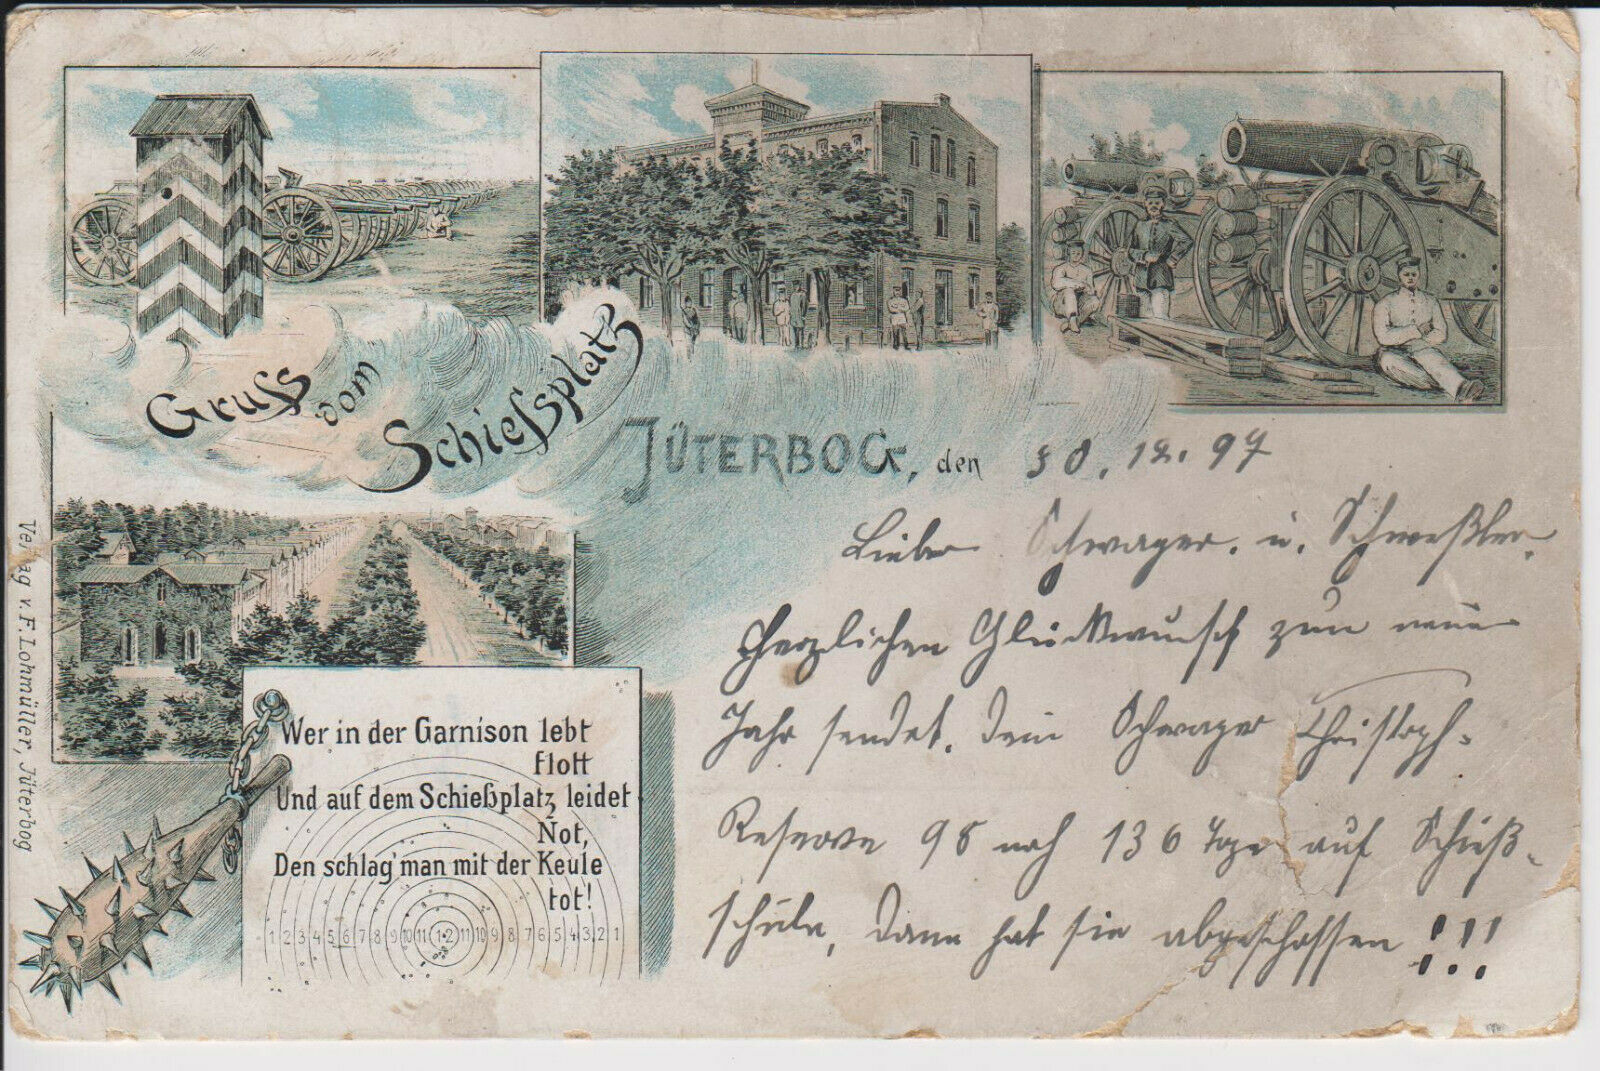 Gruss vom Schießplatz
JÜTERBOG, den 30. 12. 97
Lieber Schwager. u. Schweßter.
Herzlichen Glückwunsch zum neuen
Jahr sendet. Dein Schwager Christoph-
Reserve 98 noch 136 Tage auf Schieß-
schule, dann hat sie abgeschossen !!!
Wer in der Garnison lebt
flott
Und auf dem Schießplatz leidet
Not,
Den schlag' man mit der Keule
tot!
1 2 3 4 5 6 7 8 9 10 11 12 11 10 9 8 7 6 5 4 3 2 1
Verlag v. F. Lohmüller, Jüterbog